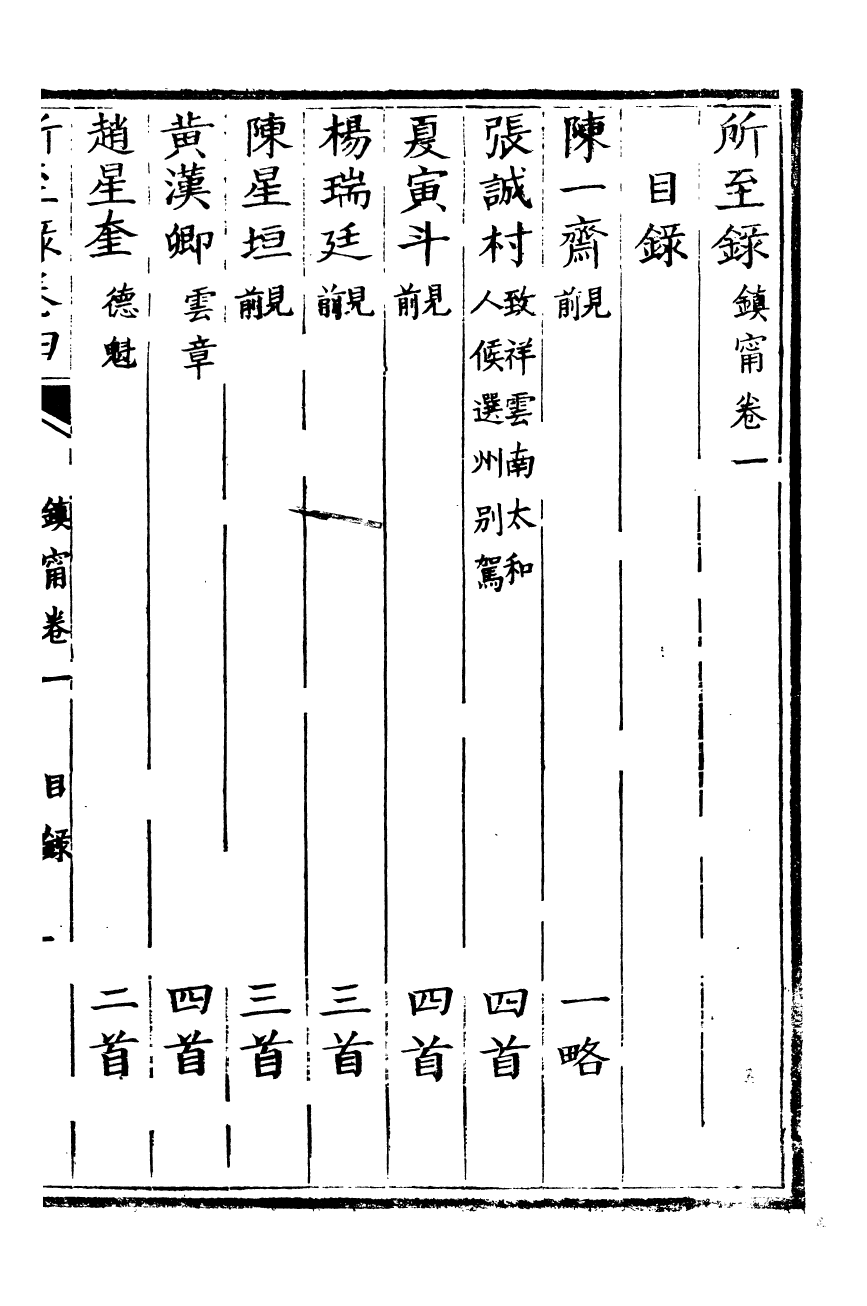 所至錄鎮甯卷一
目錄
陳一齋見前 一略
張誠村致祥雲南太和人候選州别駕 四首
夏寅斗見前 四首
楊瑞廷見前 三首
陳星垣見前 三首
黄漢卿雲章 四首
趙星奎德魁 二首
所至錄卷四 鎮甯卷一 目錄 一